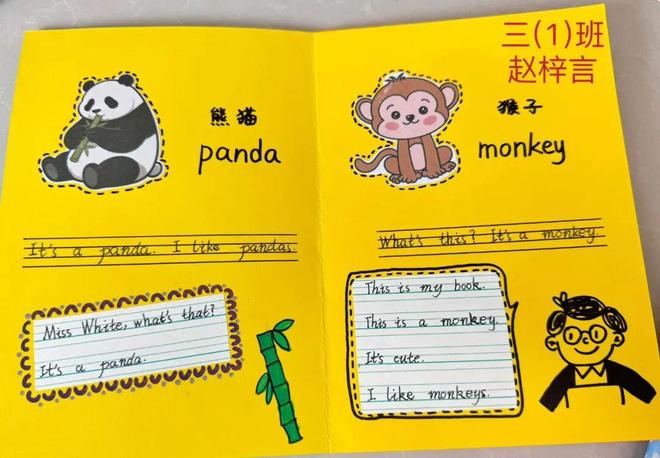 熊猫
panda
It's a panda. I like pandas.
Miss White, what's that?
It's a panda.
三(1)班
赵梓言
猴子
monkey
What's this? It's a monkey.
This is my book.
This is a monkey.
It's cute.
I like monkeys.